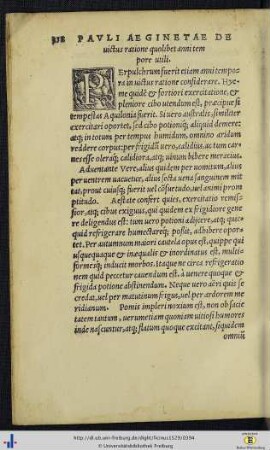 PAVLI AEGINETAE DE
uictus ratione quolibet anni tem
pore utili.
PErpulchrum fuerit etiam anni tempo
ra in uictus ratione considerare. Hye
me quidē & fortiori exercitatione, &
pleniore cibo utendum est, præcipue si
tempestas Aquilonia fuerit. Si uero australis, similiter
exercitari oportet, sed cibo potioniq; aliquid demere:
atq; in totum per tempus humidum, omnino aridum
reddere corpus: per frigidū uero, calidius. ac tum car
nes esse oleraq; calidiora, atq; uinum bibere meracius.
Adueniante Vere, alius quidem per uomitum, alius
per uentrem uacuetur, alius secta uena sanguinem mit
tat: prout cuiusq; fuerit uel cōsuetudo, uel animi prom
ptitudo. Aestate confert quies, exercitatio remiss
ior, atq; cibus exiguus, qui quidem ex frigidiore gene
re deligendus est: tum uero potioni adijcere, atq; quic
quid refrigerare humectareq; possit, adhibere opor=
tet. Per autumnum maiori cautela opus est, quippe qui
usquequaque & inæqualis & inordinatus est, multi=
formesq; inducit morbos. Itaque ne circa refrigeratio
nem quid peccetur cauendum est. à uenere quoque &
frigida potione abstinendum. Neque uero aëri quis se
credat, uel per matutinum frigus, uel per ardorem me
ridianum. Pomis impleri noxium est, non ob facie
tatem tantum, uerum etiam quoniam uitiosi humores
inde nascuntur, atq; flatum quoque excitant, siquidem
omniū
http://dl.ub.uni-freiburg.de/diglit/ficinus1529/0394
© Universitätsbibliothek Freiburg